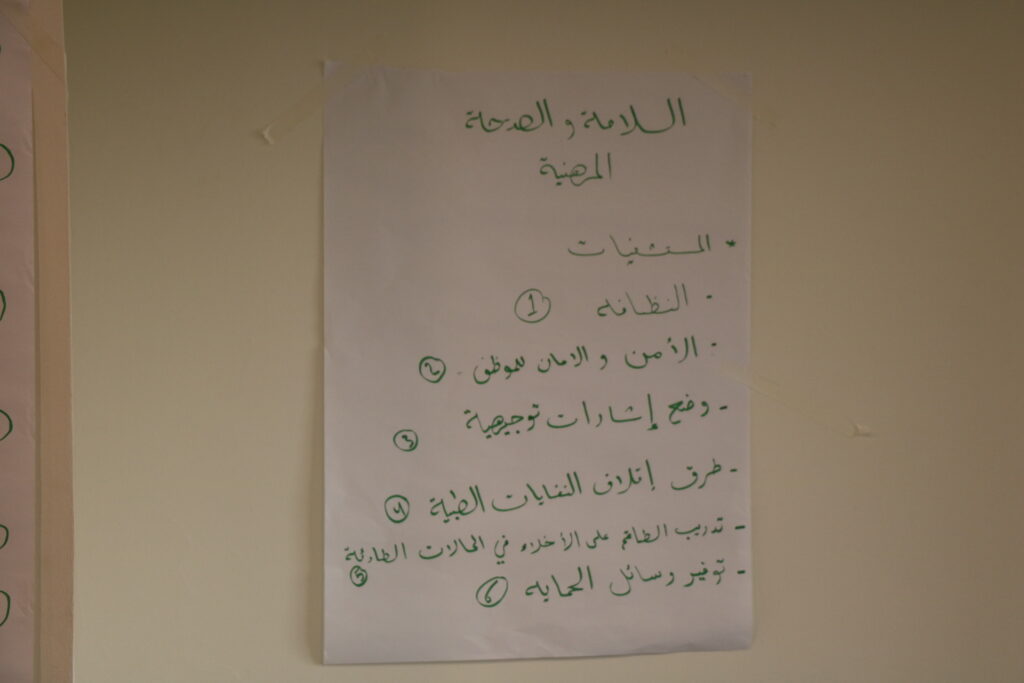 السلامة و الصحة
المهنية
* المستشفيات
- النظافه ①
- الأمن و الامان للموظف - ②
- وضع إشارات توجيهية ③
- طرق إتلاف النفايات الطبية ④
- تدريب الطاقم على الأخلاء في الحالات الطارئة ⑤
- توفير وسائل الحمايه ⑥